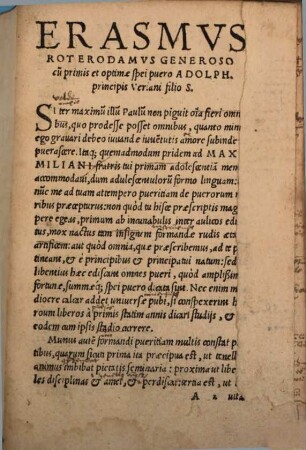 ERASMVS
ROTERODAMVS GENEROSO
cũ primis et optimæ spei puero ADOLPH.
principis Veriani filio S.
SI ter maximũ illũ Paulũ non piguit oĩa fieri omn
bus, quo prodesse posset omnibus, quanto min
ego grauari debeo iuuandæ iuuẽtutis amore subinde
puerascere. Itaq; quemadmodum pridem ad MAX
MILIANI fratris tui primam adolescentiã men
accommodani, dum adolescentulorũ formo linguam:
nũc me ad tuam attempero pueritiam de puerorum
ribus præcepturus: non quòd tu hisce præscriptis mag
pere egeas, primum ab incunabulis inter aulicos edu
tus, mox nactus tam insignem formandæ rudis æta
artificem: aut quòd omnia, quæ præscribemus, ad te p
tineant, & è principibus & principatui natum: sed
libentius hæc ediscant omnes pueri, quòd amplissim
fortunæ, summæq; spei puero dicata sint. Nec enim m
diocre calcar addet uniuersæ pubi, si conspexerint h
roum liberos à primis statim annis dicari studijs, &
eodem cum ipsis stadio currere.
Munus autẽ formandi pueritiam multis constat p
tibus, quarum sicuti prima ita præcipua est, ut tenell
animus imbibat pietatis seminaria: proxima ut libe
les disciplinas & amet, & perdiscat: tertia est, ut
A 2 uitæ